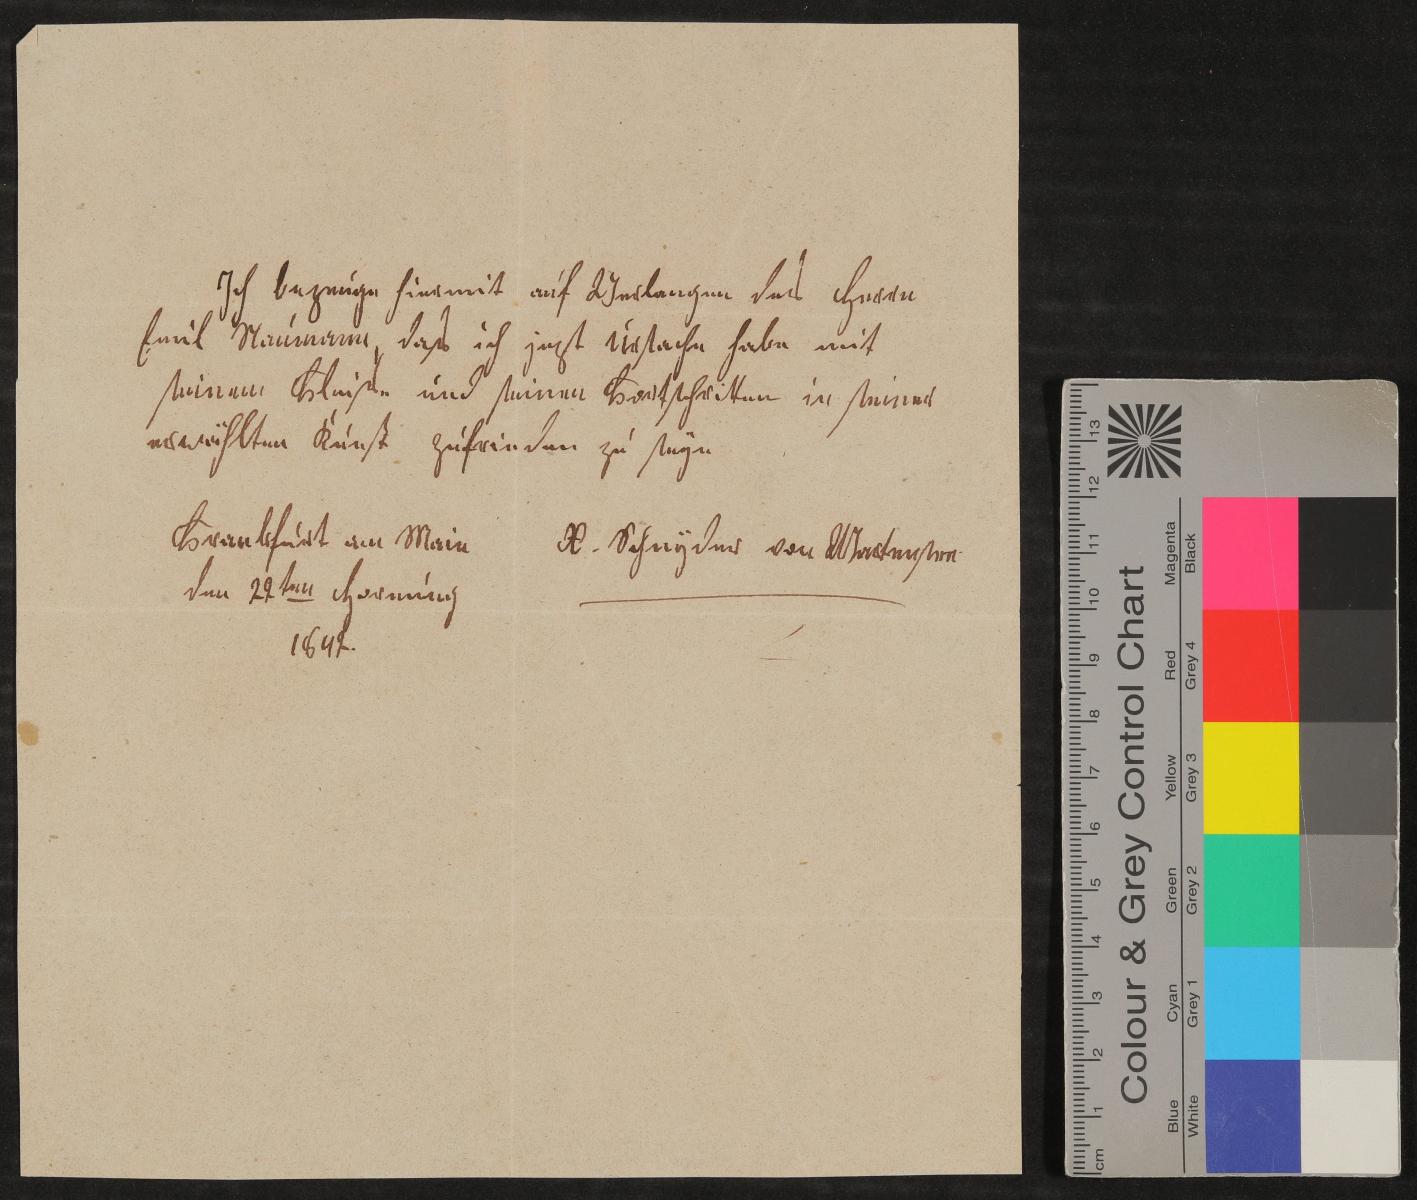 Ich bezeuge hiermit auf Verlangen des Herrn
Emil Naumann, daß ich jezt Ursache habe mit
seinem Fleiße und seinen Fortschritten in seiner
erwählten Kunst zufrieden zu seyn
Frankfurt am Main
den 22ten Hornung
1842.
X. Schnyder von Wartensee
Colour & Grey Control Chart
Blue Cyan Green Yellow Red Magenta
White Grey 1 Grey 2 Grey 3 Grey 4 Black
cm 1 2 3 4 5 6 7 8 9 10 11 12 13